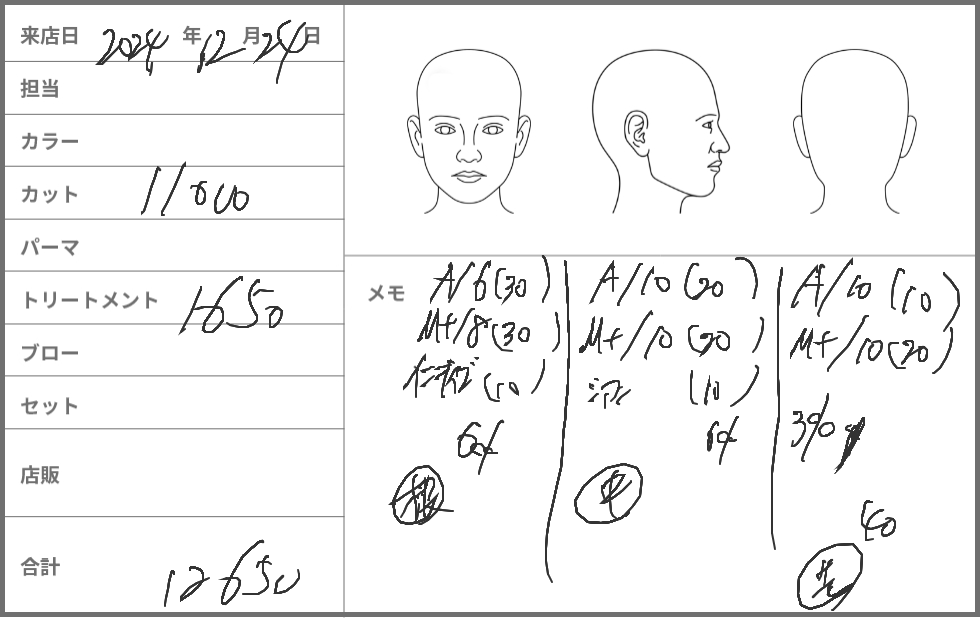 来店日 2024年12月24日
担当
カラー
カット 11000
パーマ
トリートメント 1650
ブロー
セット
店販
合計 12650
メモ
A/6(30)
M+/8(30
(10)
根
A/10(20)
M+/10(20)
(10)
中
A/10(10)
M+/10(20)
3%
40